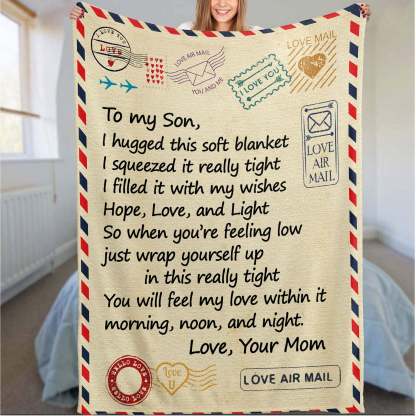 I LOVE YOU
LOVE
LOVE AIR MAIL
YOU AND ME
I LOVE YOU
LOVE MAIL
LOVE
AIR
MAIL
To my Son,
I hugged this soft blanket
I squeezed it really tight
I filled it with my wishes
Hope, Love, and Light
So when you're feeling low
just wrap yourself up
in this really tight
You will feel my love within it
morning, noon, and night.
Love, Your Mom
HELLO LOVE
Love
U
LOVE AIR MAIL